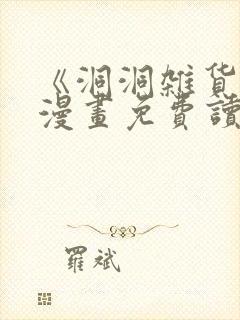 《洞洞雜貨
漫畫免費讀
羅斌